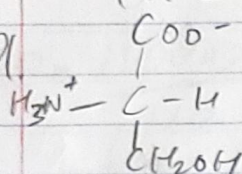 COO-
H3N+ – C – H
CH2OH